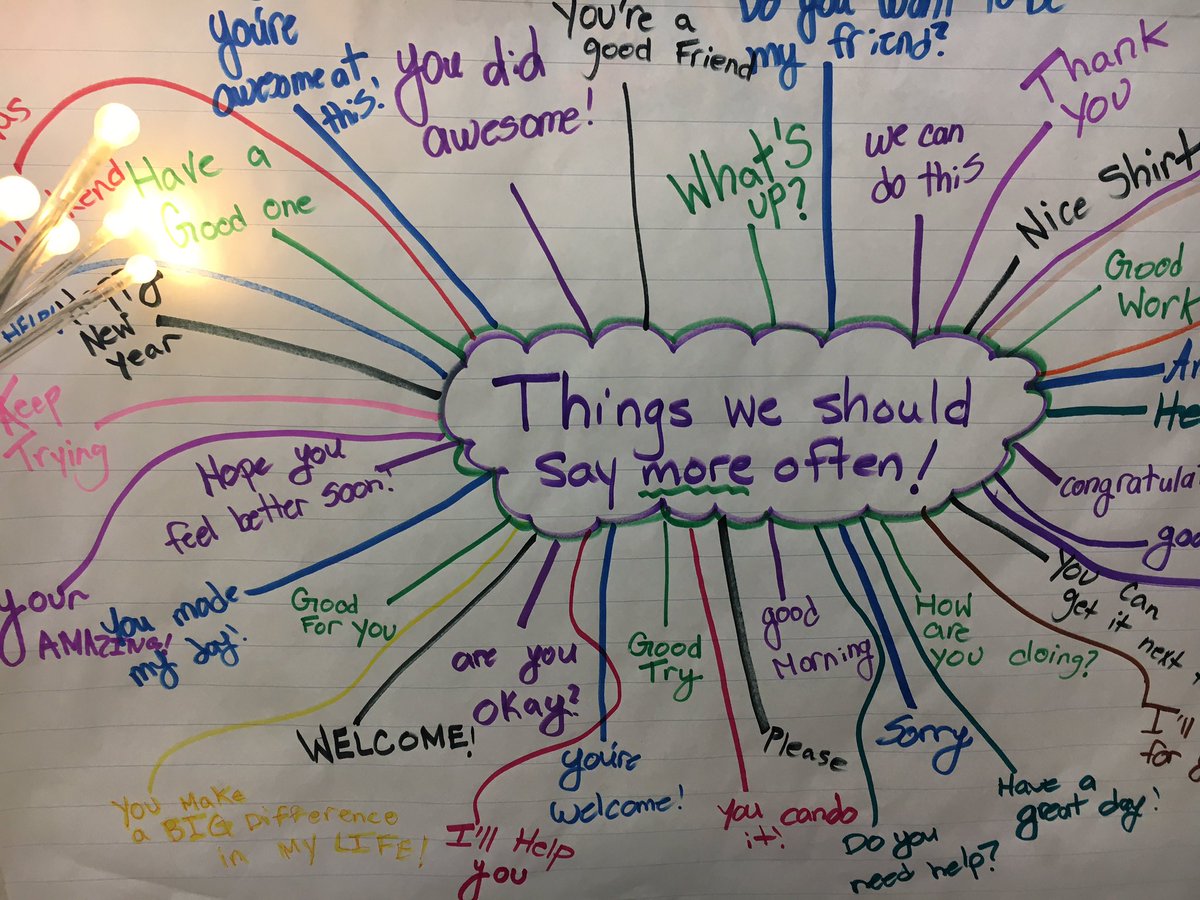 Things we should
say more often!
you're
awesome at
this!
you did
awesome!
You're a
good Friend
Do you want to be
my friend?
Thank
you
What's
up?
we can
do this
Nice Shirt
Have a
Good one
Good
Work
HELP
New
Year
Keep
Trying
Hope you
feel better soon!
your
AMAZING!
you made
my day!
Good
For you
are you
okay?
WELCOME!
You Make
a BIG Difference
in MY LIFE!
I'll Help
you
you're
welcome!
Good
Try
you can do
it!
Please
good
Morning
Do you
need help?
Sorry
How
are
you doing?
Have a
great day!
You can
get it next
I'll
for